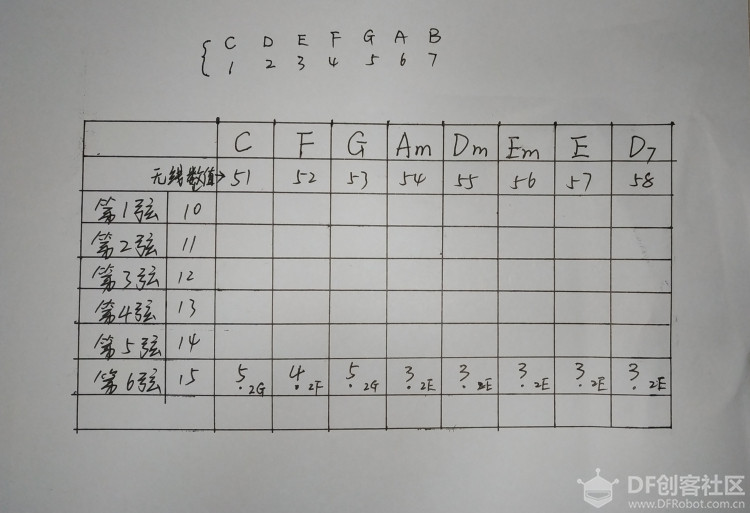 C D E F G A B
1 2 3 4 5 6 7
C F G Am Dm Em E D7
无线数值→ 51 52 53 54 55 56 57 58
第1弦 10
第2弦 11
第3弦 12
第4弦 13
第5弦 14
第6弦 15 5. 2G 4. 2F 5. 2G 3. 2E 3. 2E 3. 2E 3. 2E 3. 2E
DF创客社区
www.DFRobot.com.cn